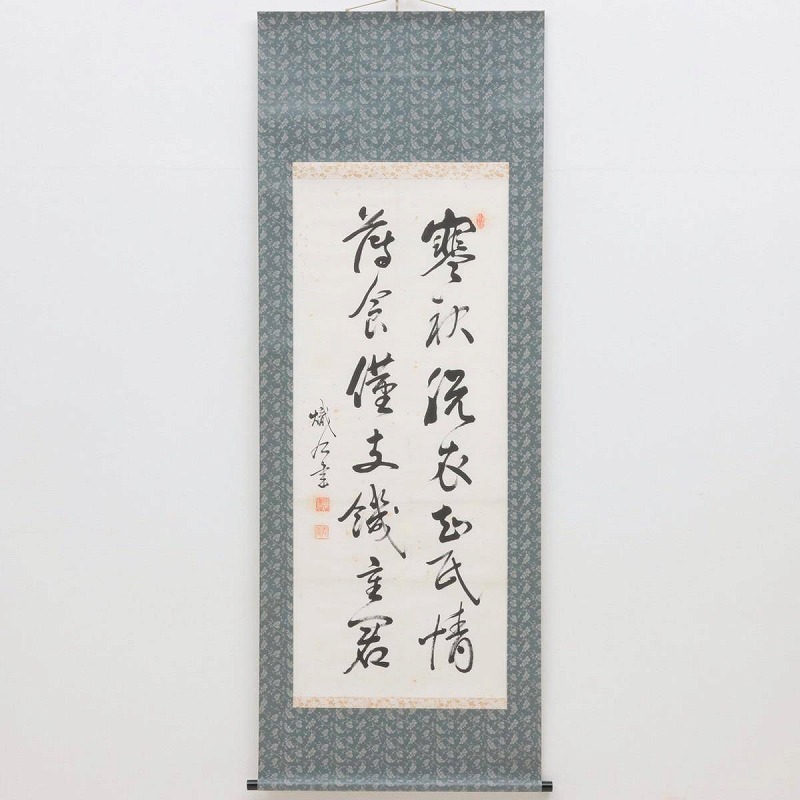 寒秋脱衣知民情
薄食僅支饑主君
熾仁書